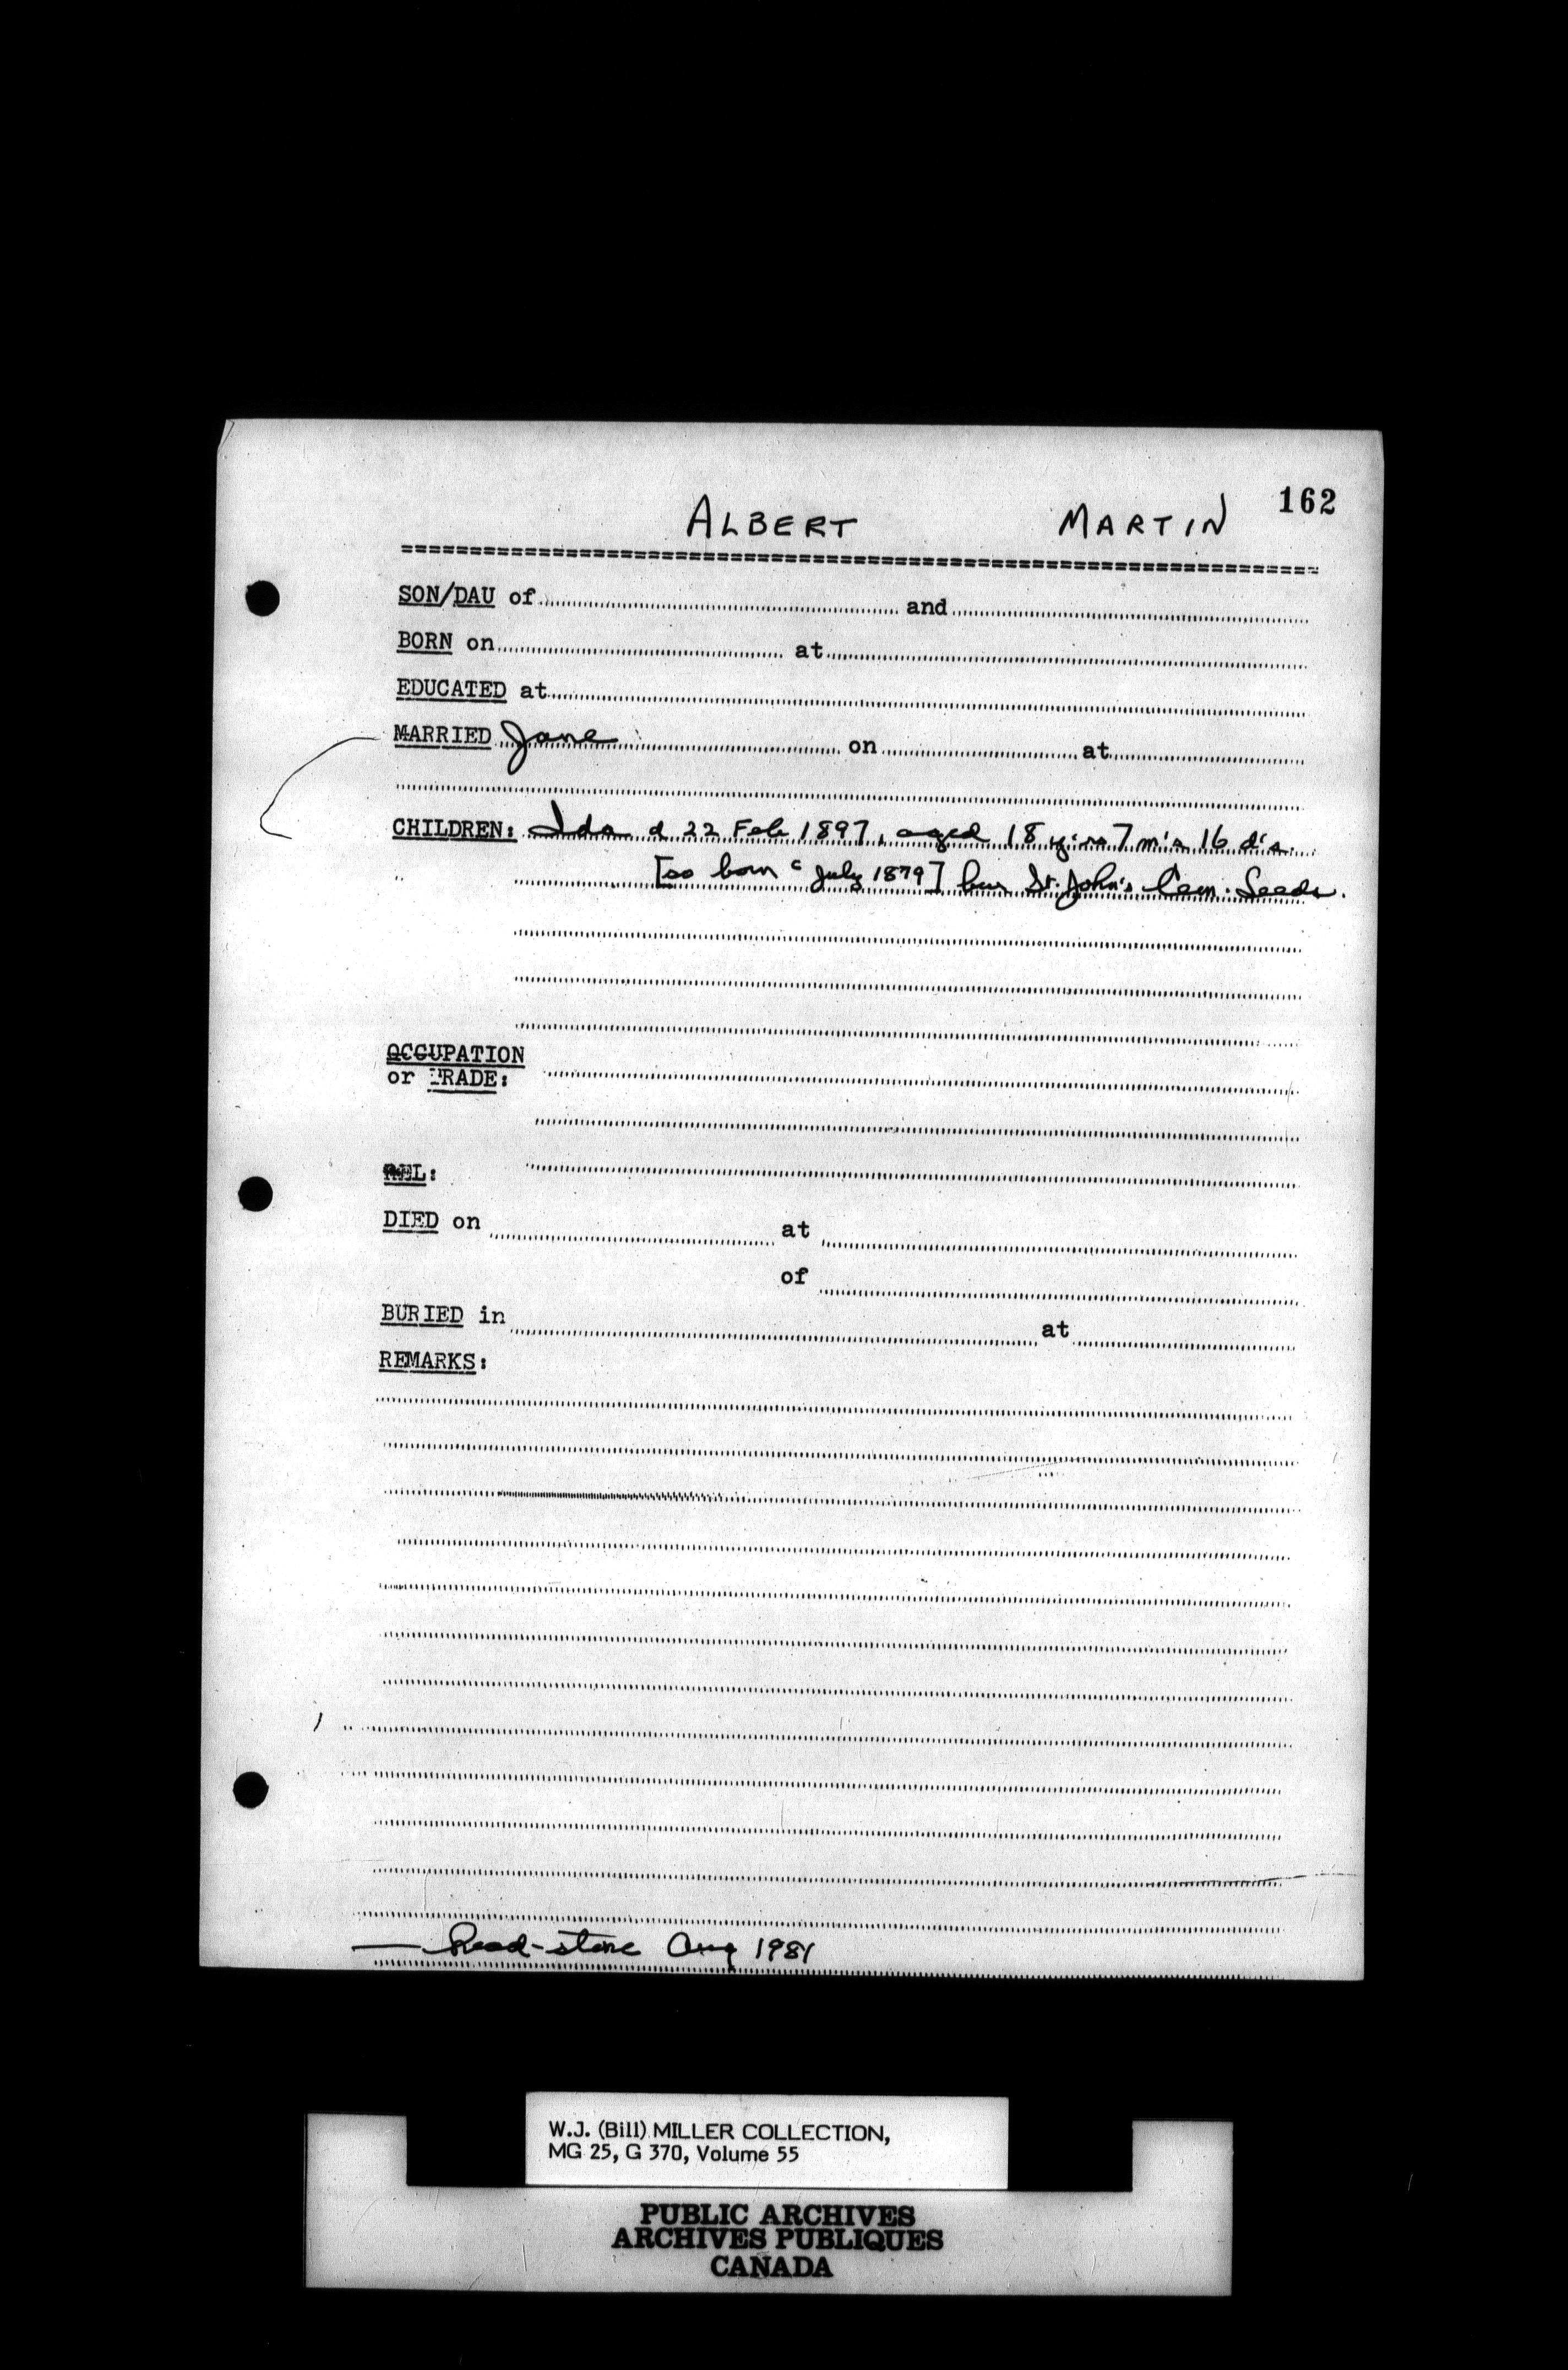 162
ALBERT MARTIN
SON/DAU of and
BORN on at
EDUCATED at
MARRIED Jane on at
CHILDREN: Ida d 22 Feb 1897, aged 18 y'rs 7 m's 16 d's.
[so born c July 1879] bur St. John's Cem. Leeds.
OCCUPATION
or TRADE:
REL:
DIED on at
of
BURIED in at
REMARKS:
— Head-stone Aug 1981
W.J. (Bill) MILLER COLLECTION,
MG 25, G 370, Volume 55
PUBLIC ARCHIVES
ARCHIVES PUBLIQUES
CANADA